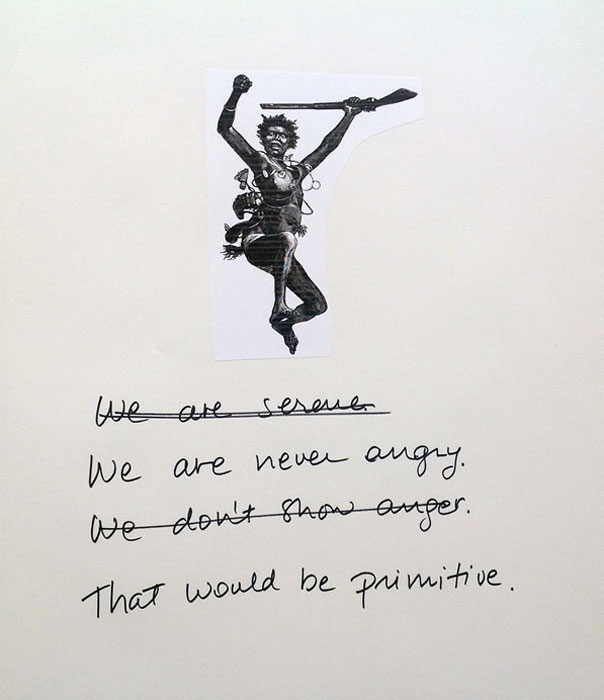 We are serene.
We are never angry.
We don't show anger.
That would be primitive.